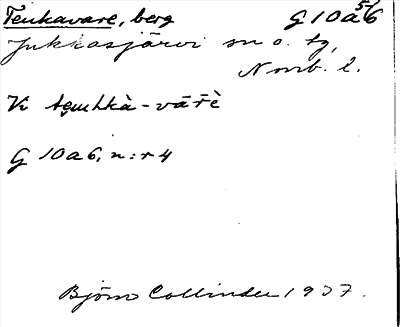 Teukavare, berg G10a 5/6
Jukkasjärvi sn o. tg,
Norrb. l.
G 10a 6, n:r 4
Björn Collinder 1937.